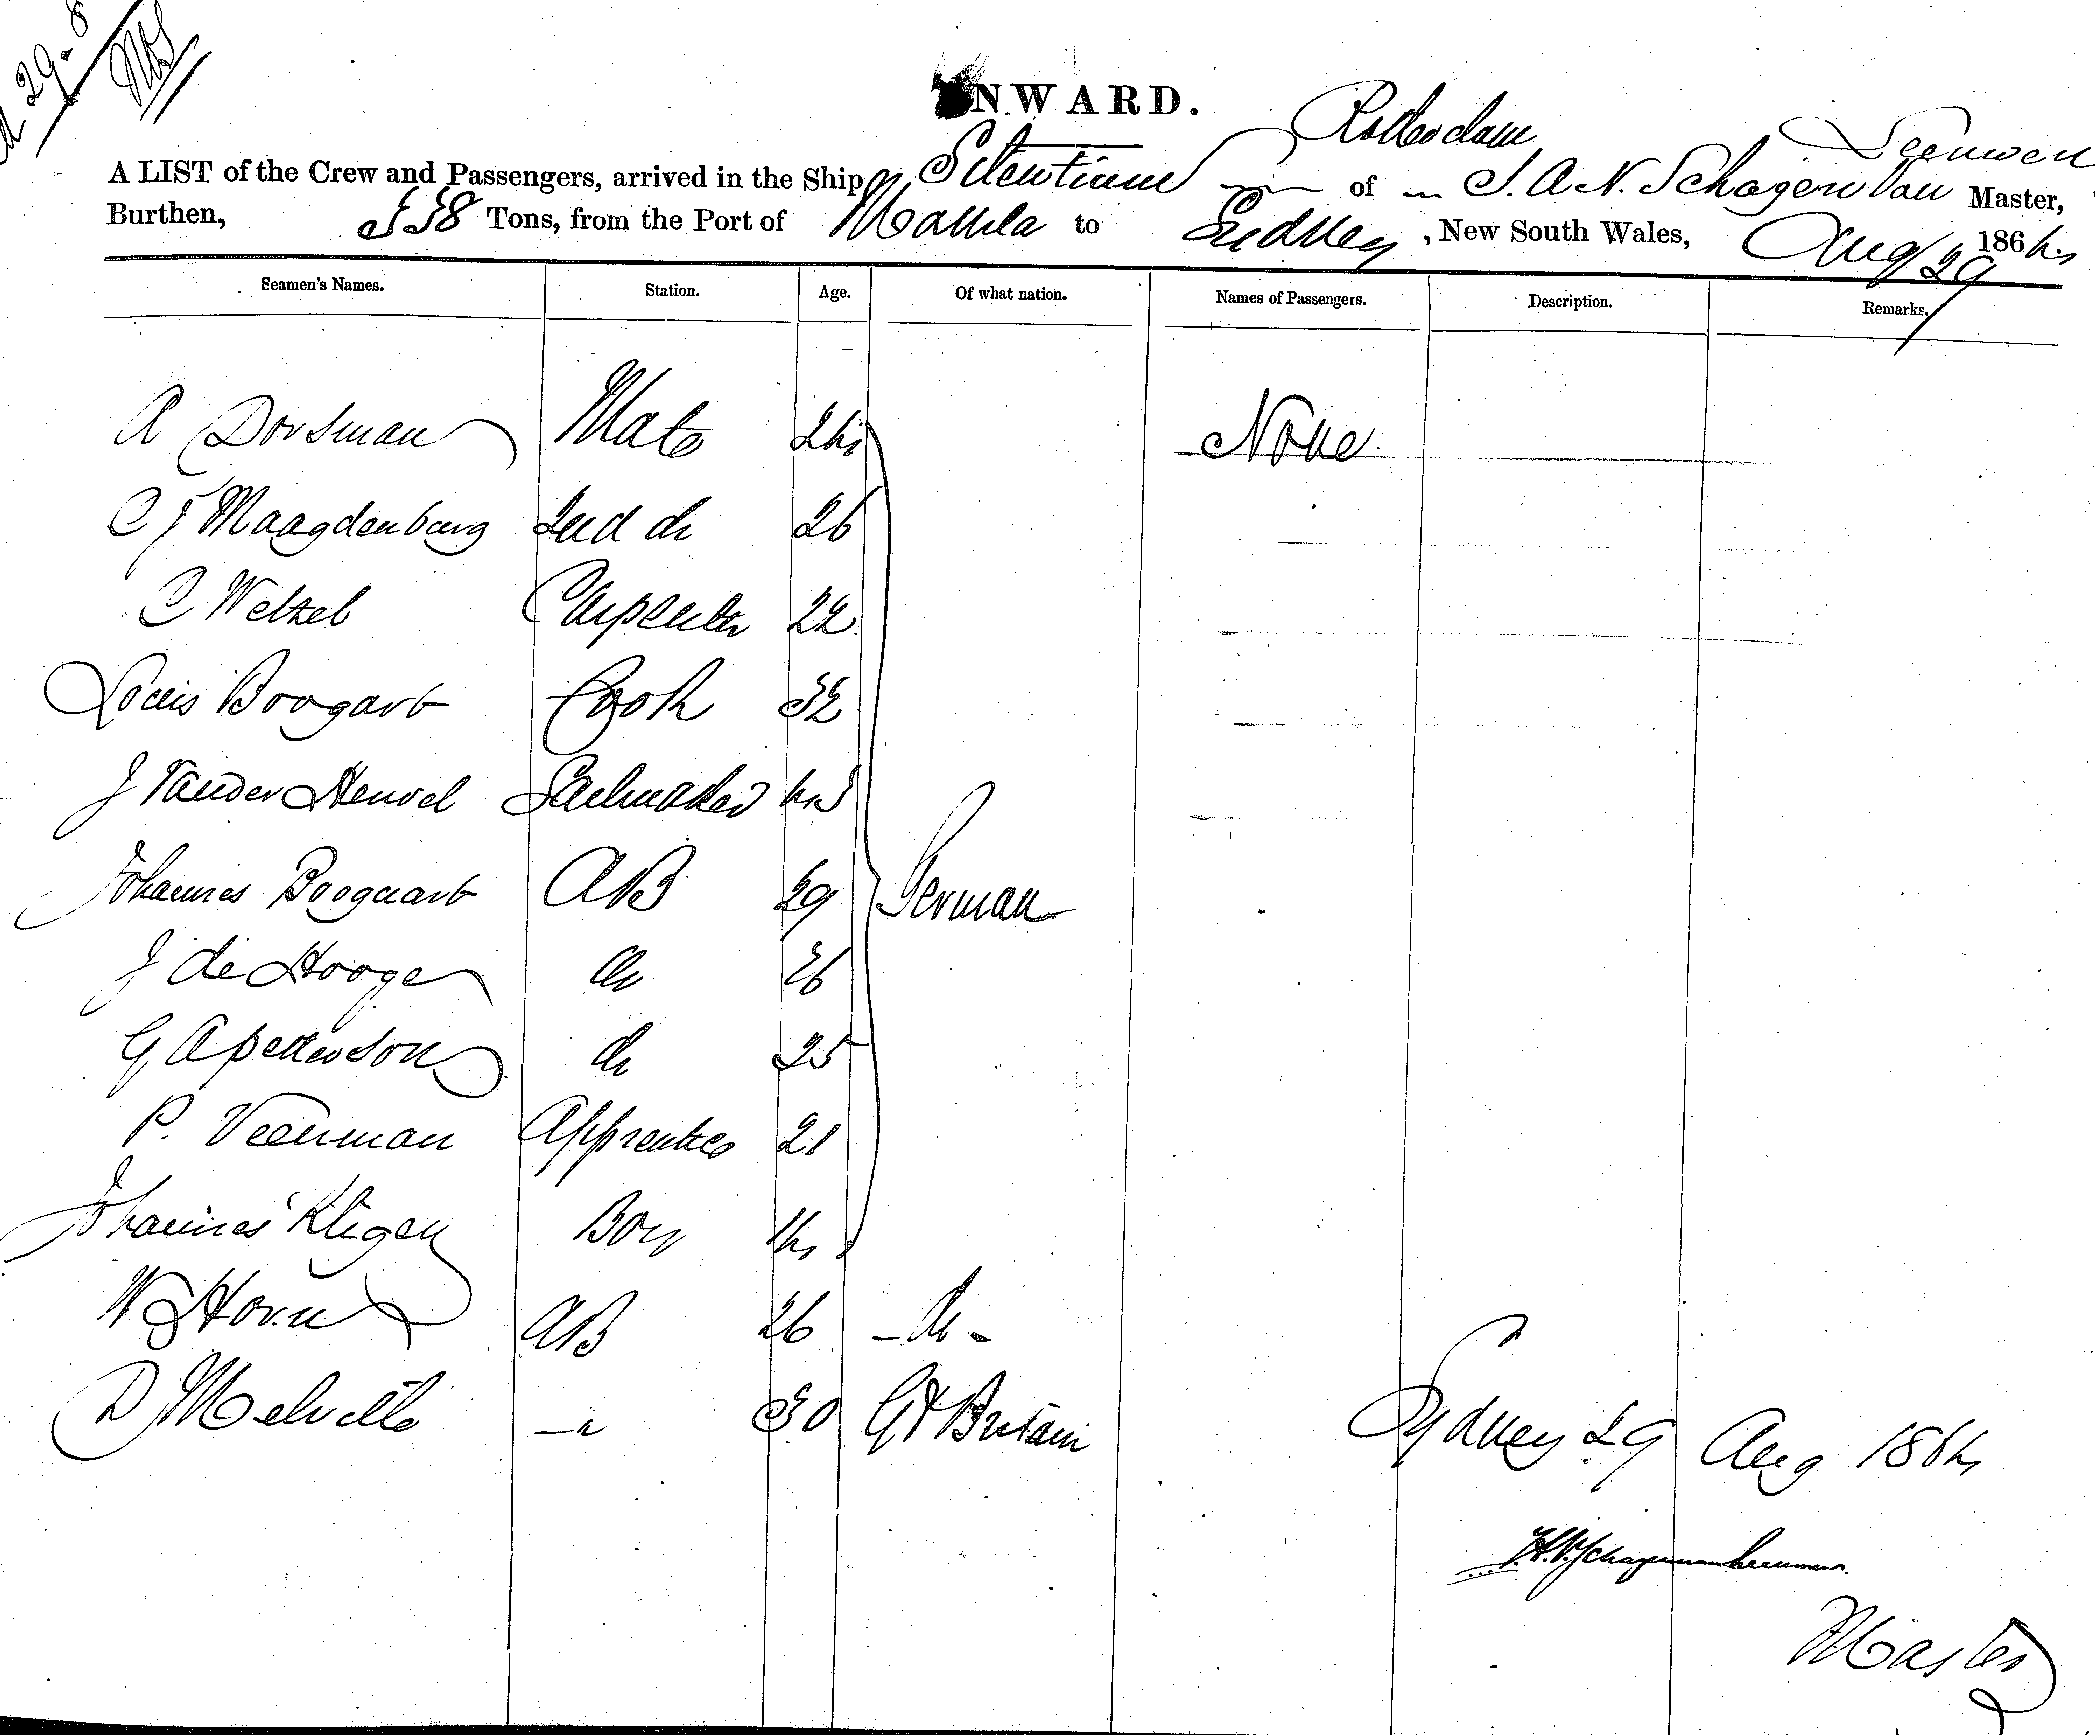 29-8
INWARD.
Rotterdam
Leeuwen
A LIST of the Crew and Passengers, arrived in the Ship Silentium of J. A. N. Schagen Van Master,
Burthen, 338 Tons, from the Port of Manila to Sydney, New South Wales, Aug 29 1864
Seamen's Names. Station. Age. Of what nation. Names of Passengers. Description. Remarks.
A Dorsman Mate 24 None
C J Maagdenburg 2nd do 26
C Wetzel Carpenter 22
Louis Boogart Cook 32
J Vander Heuvel Sailmaker 43
Johannes Boogaart AB 29 German
J de Hooge do 26
G A petterson do 25
P. Veerman Apprentice 21
Johannes Kligen Boy 14
W Horn AB 26 - do -
D Melville - " 30 Gt Britain
Sydney 29 Aug 1864
J.A.N. Schagen van Leeuwen
Master